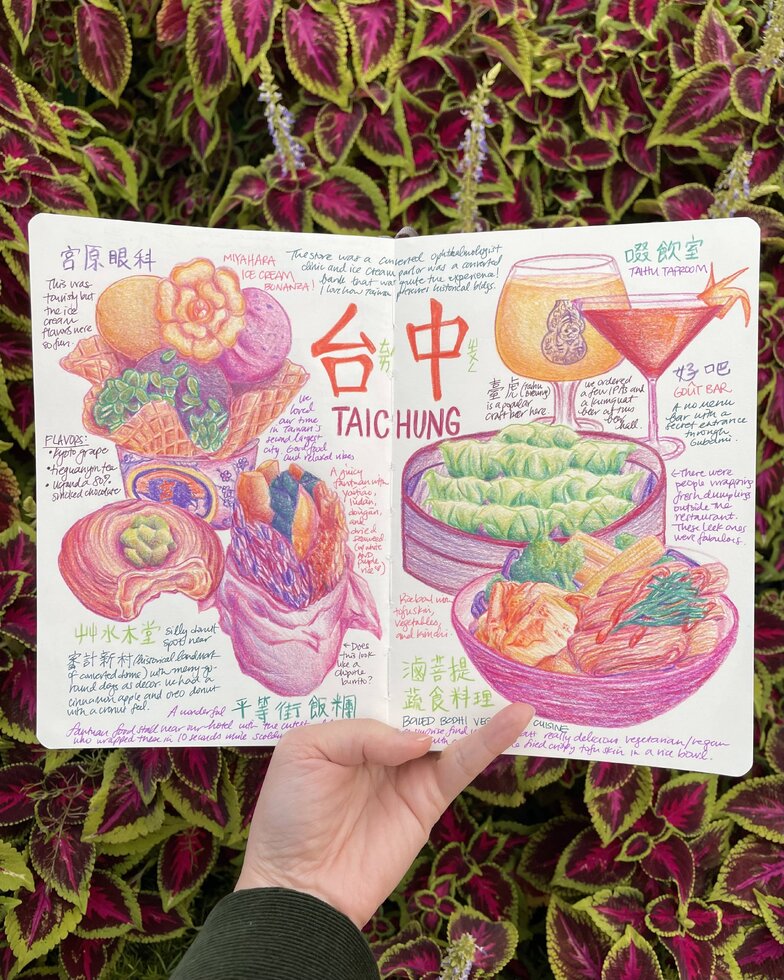 宮原眼科
MIYAHARA
ICE CREAM
BONANZA!
The store was a converted ophthalmologist
clinic and ice cream parlor was a converted
bank that was quite the experience!
I love how Taiwan preserves historical bldgs.
This was
touristy but
the ice
cream
flavors were
so fun.
FLAVORS:
• kyoto grape
• tieguanyin tea
• Uganda 80%
smoked chocolate
台中
TAICHUNG
We
loved
our time
in Taiwan's
second largest
city. Good food
and relaxed vibes
A juicy
fantuan with
youtiao,
lüdàn,
dried
seaweed
(w/ white
AND
purple
rice
← Does
this look
like a
chipotle
burrito?
艸水木堂
silly donut
spot near
審計新村 (historical landmark
of converted dorms) with merry-go-
round dogs as decor. We had a
cinnamon apple and oreo donut
with a cronut feel.
A wonderful 平等街飯糰
fantuan food stall near our hotel with the cutest
who wrapped them in 10 seconds while
啜飲室
TAIHU TAPROOM
臺虎 (taihu
brewing)
is a popular
craft beer here
we ordered
a few IPAs and
a kumquat
beer at this
chill.
好吧
GOÛT BAR
A no menu
bar with a
secret entrance
through
Gubami.
There were
people wrapping
fresh dumplings
outside the
restaurant.
These leek ones
were fabulous.
Rice bowl with
tofu skin,
vegetables,
and kimchi.
滷菩提
蔬食料理
BOILED BODHI VEG CUISINE
surprise find really delicious vegetarian/vegan
with fried crispy tofu skin in a rice bowl.